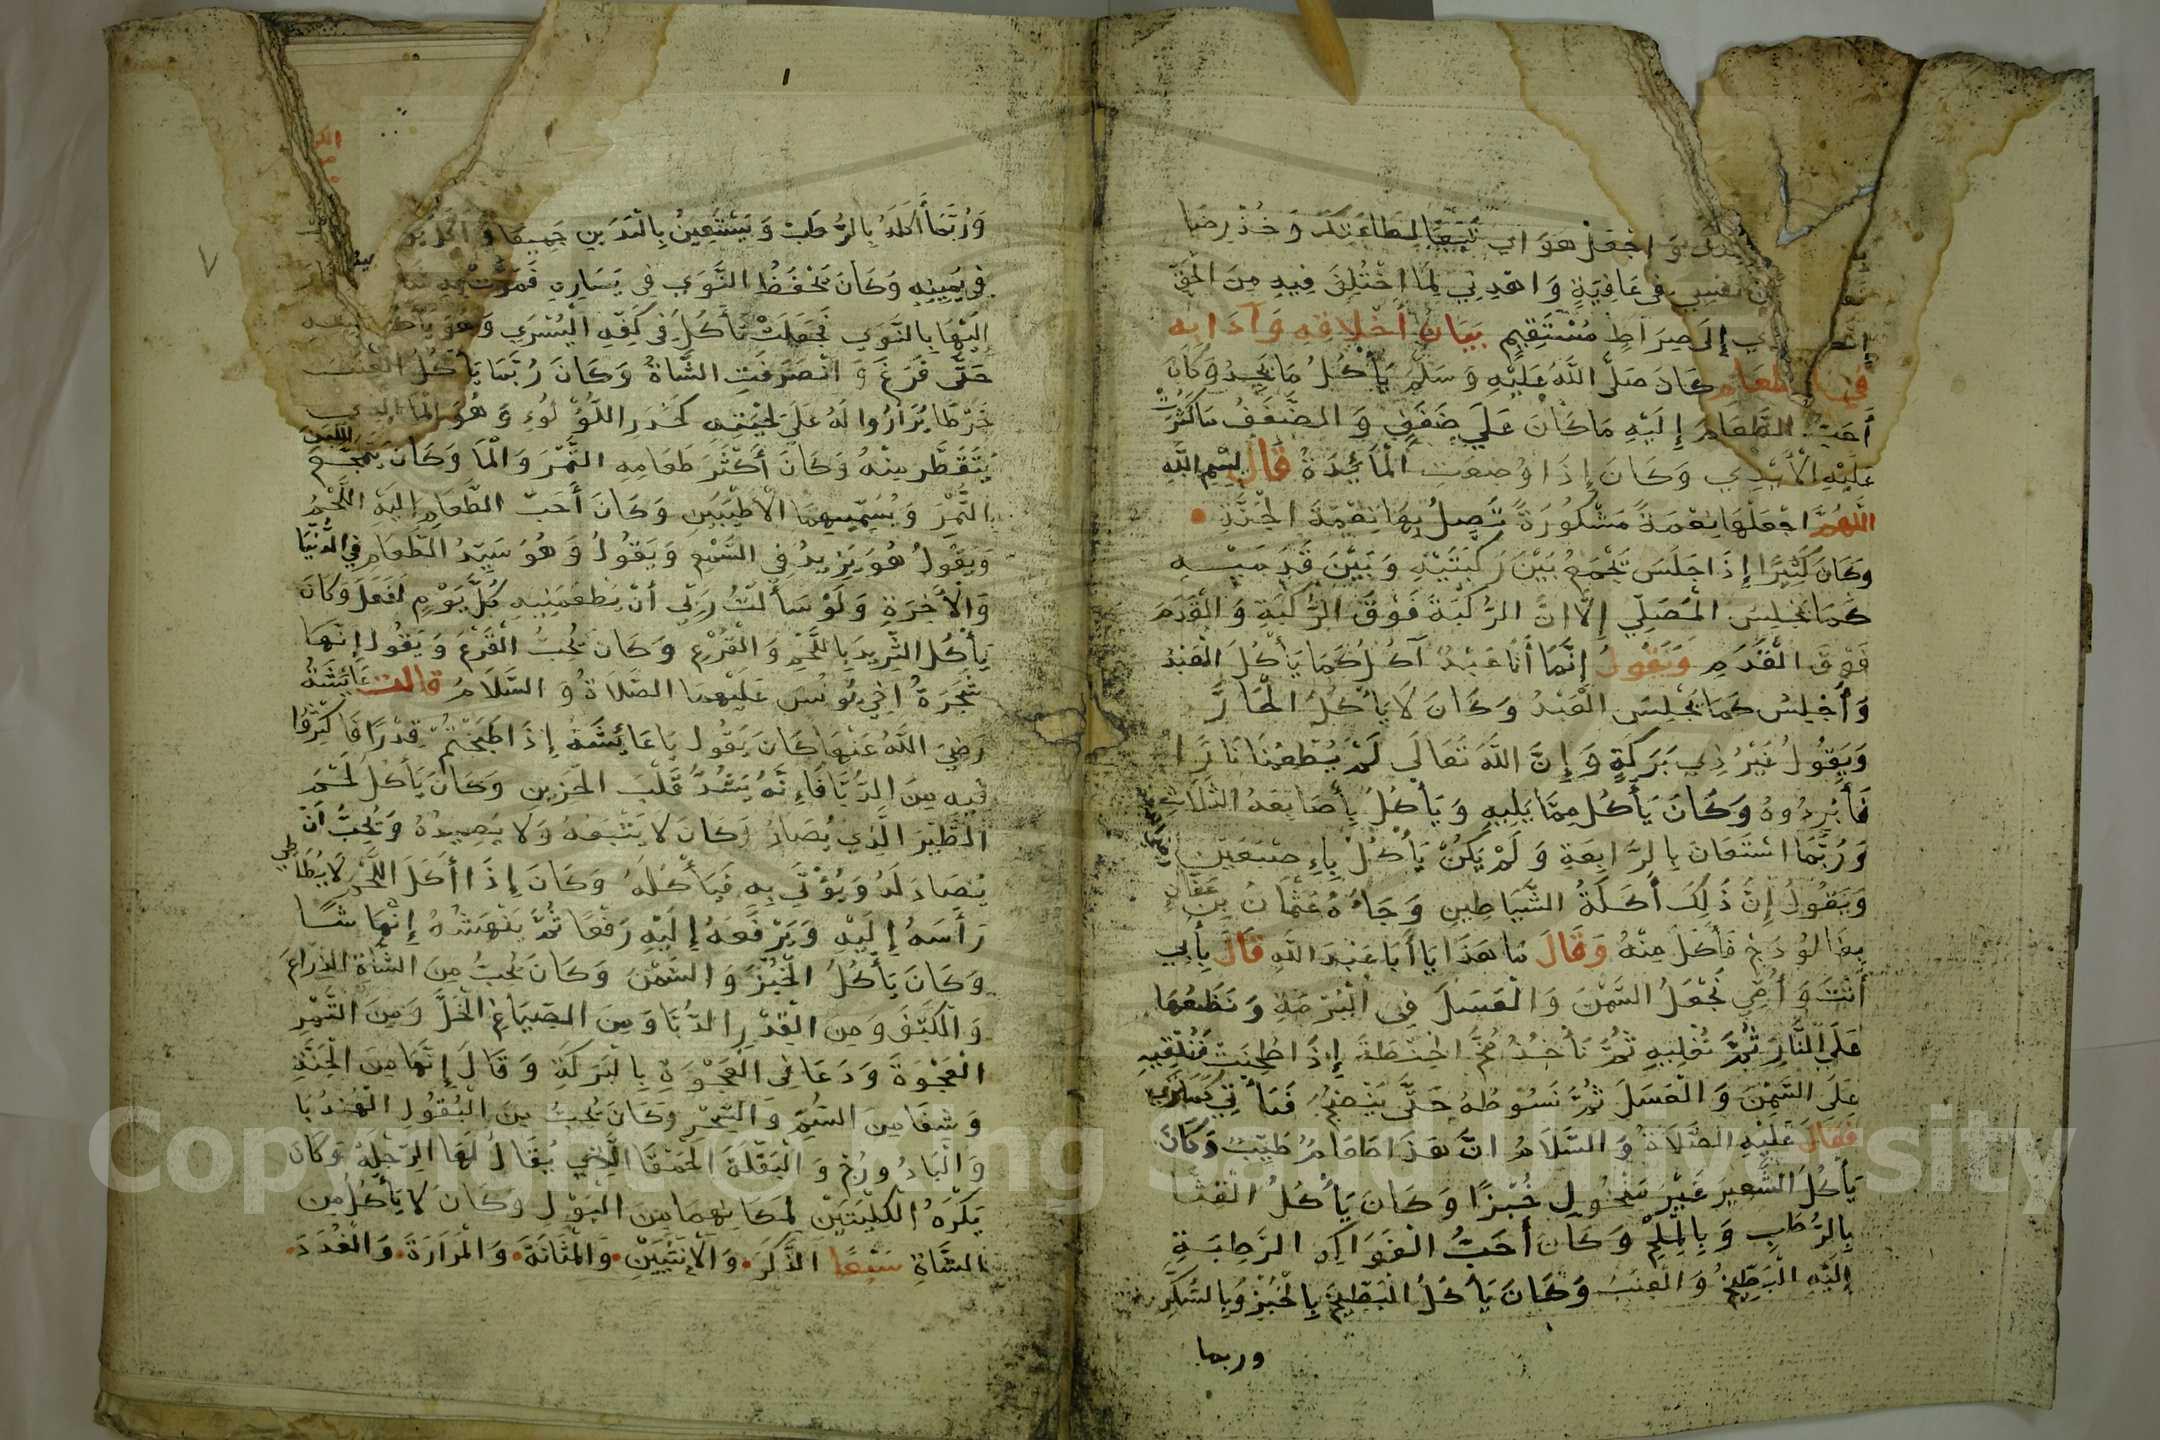 واجعل هواي تبعا لطاعتك وخذ رضا
نفسي في عافية واهدني لما اختلف فيه من الحق
إلى صراط مستقيم بيان أخلاقه وآدابه
في الطعام كان صلى الله عليه وسلم يأكل ما يجد وكان
أحب الطعام إليه ما كان على ضفف والضفف ما كثرت
عليه الأيدي وكان إذا وضعت المائدة قال بسم الله
اللهم اجعلها نعمة مشكورة تصل بها نعمة الجنة
وكان كثيرا إذا جلس يجمع بين ركبتيه وبين قدميه
كما يجلس المصلي إلا ان الركبة فوق الركبة والقدم
فوق القدم ويقول إنما أنا عبد آكل كما يأكل العبد
وأجلس كما يجلس العبد وكان لا يأكل الحار
ويقول غير ذي بركة وإن الله تعالى لم يطعمنا نارا
فأبردوه وكان يأكل مما يليه ويأكل بأصابعه الثلاث
وربما استعان بالرابعة ولم يكن يأكل بإصبعين
ويقول إن ذلك أكلة الشياطين وجاءه عثمان بن عفان
بفالودج فأكل منه وقال ما هذا يا أبا عبد الله قال بأبي
أنت وأمي نجعل السمن والعسل في البرمة ونضعها
على النار ثم نغليه ثم نأخذ مخ الحنطة إذا طحنت فنلقيه
على السمن والعسل ثم نسوطه حتى ينضج فيأتي كما ترى
فقال عليه الصلاة والسلام ان هذا طعام طيب وكان
يأكل الشعير غير منخول خبزا وكان يأكل القثا
بالرطب وبالملح وكان أحب الفواكه الرطبة
إليه البطيخ والعنب وكان يأكل البطيخ بالخبز وبالسكر
وربما
١
وربما أكله بالرطب ويستعين باليدين جميعا
في يمينه وكان يحفظ النوى في يساره فمرت به
إليها بالنوى فجعلت تأكل في كفه اليسرى وهو يأكل
حتى فرغ وانصرفت الشاة وكان ربما يأكل العنب
خرطا يرى زواله على لحيته كخدر اللؤلؤ وهو الما الذي
يتقطر منه وكان أكثر طعامه التمر والما وكان يتمجع اللبن
بالتمر ويسميهما الأطيبين وكان أحب الطعام إليه اللحم
ويقول هو يزيد في السمع ويقول وهو سيد الطعام في الدنيا
والأخرة ولو سألت ربي أن يطعمنيه كل يوم لفعل وكان
يأكل الثريد باللحم والقرع وكان يحب القرع ويقول إنها
شجرة اخي يونس عليهما الصلاة والسلام قالت عائشة
رضي الله عنها كان يقول يا عائشة إذا طبختم قدرا فاكثروا
فيه من الدبا فإنه يشد قلب الحزين وكان يأكل لحم
الطير الذي يصاد وكان لا يتبعه ولا يصيده ويحب أن
يصاد له ويؤتى به فيأكله وكان إذا أكل اللحم لا يطاطي
رأسه إليه ويرفعه إليه رفعا ثم ينهشه إنهاشا
وكان يأكل الخبز والسمن وكان يحب من الشاة الذراع
والكتف ومن القدر الدبا ومن الصباغ الخل ومن التمر
العجوة ودعا في العجوة بالبركة وقال إنها من الجنة
وشفا من السم والسحر وكان يحب من البقول الهندبا
والبادروج والبقلة الحمقا التي يقال لها الرجلة وكان
يكره الكليتين لمكانهما من البول وكان لا يأكل من
الشاة سبعا الذكر والانثيين والمثانة والمرارة والغدد